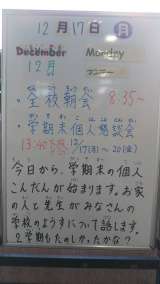 12月17日 月
December Monday
12月 マンデー
・全校朝会 8:35~
・学期末個人懇談会
13:40下校 12/17(月)~20(金)
今日から、学期末の個人
こんだんが始まります。お家
の人と先生がみなさんの
学校のようすについて話します。
2学期もたのしかったかな?